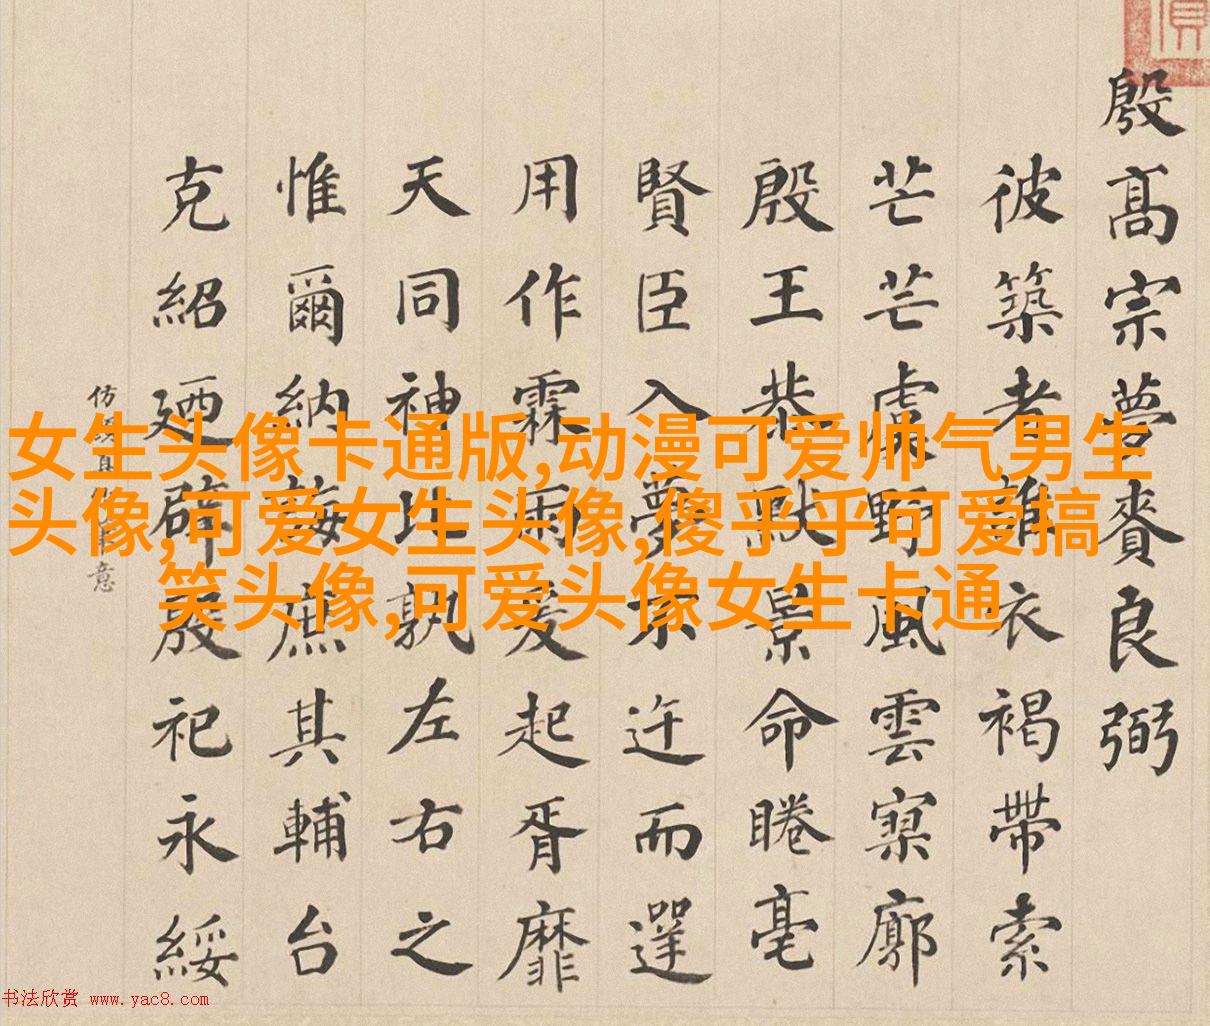 殷髙宗夢賚良弼
彼築者誰衣褐帶索
芒芒虞野風雲寥廓
殷王恭默景命睠亳
賢臣入夢不迕而遻
用作霖雨爰起胥靡
天同神比孰左右之
惟爾納誨庶其輔台
克紹廼辟殷祀永綏
仿 意
女生头像卡通版,动漫可爱帅气男生
头像,可爱女生头像,傻乎乎可爱搞
笑头像,可爱头像女生卡通
书法欣赏 www.yac8.com